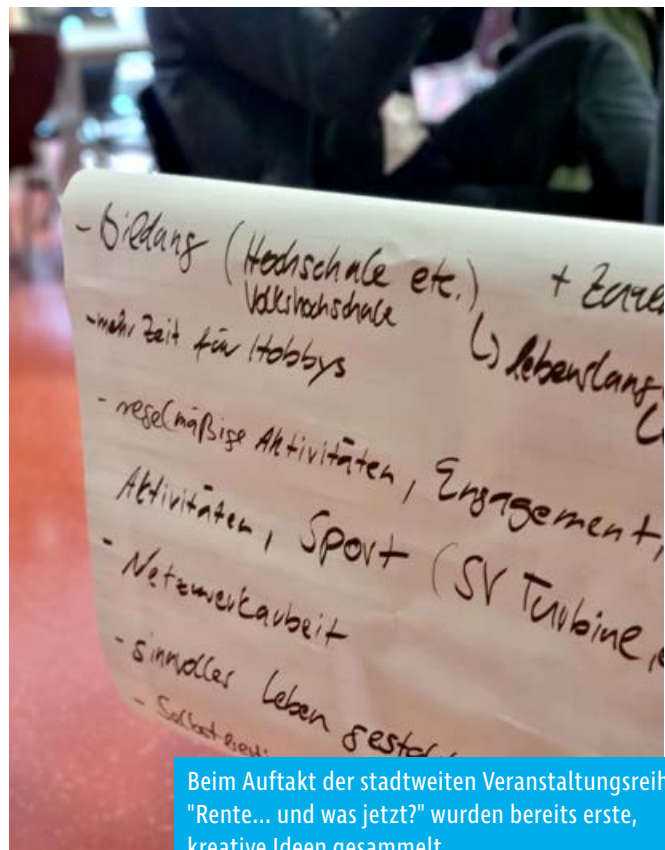 - Bildung (Hochschule etc.)
Volkshochschule
+
↳ lebenslang
- mehr Zeit für Hobbys
- regelmäßige Aktivitäten, Engagement,
Aktivitäten, Sport (SV Turbine,
- Netzwerkarbeit
- sinnvoller Leben
Beim Auftakt der stadtweiten Veranstaltungsreih
"Rente... und was jetzt?" wurden bereits erste,
kreative Ideen gesammelt